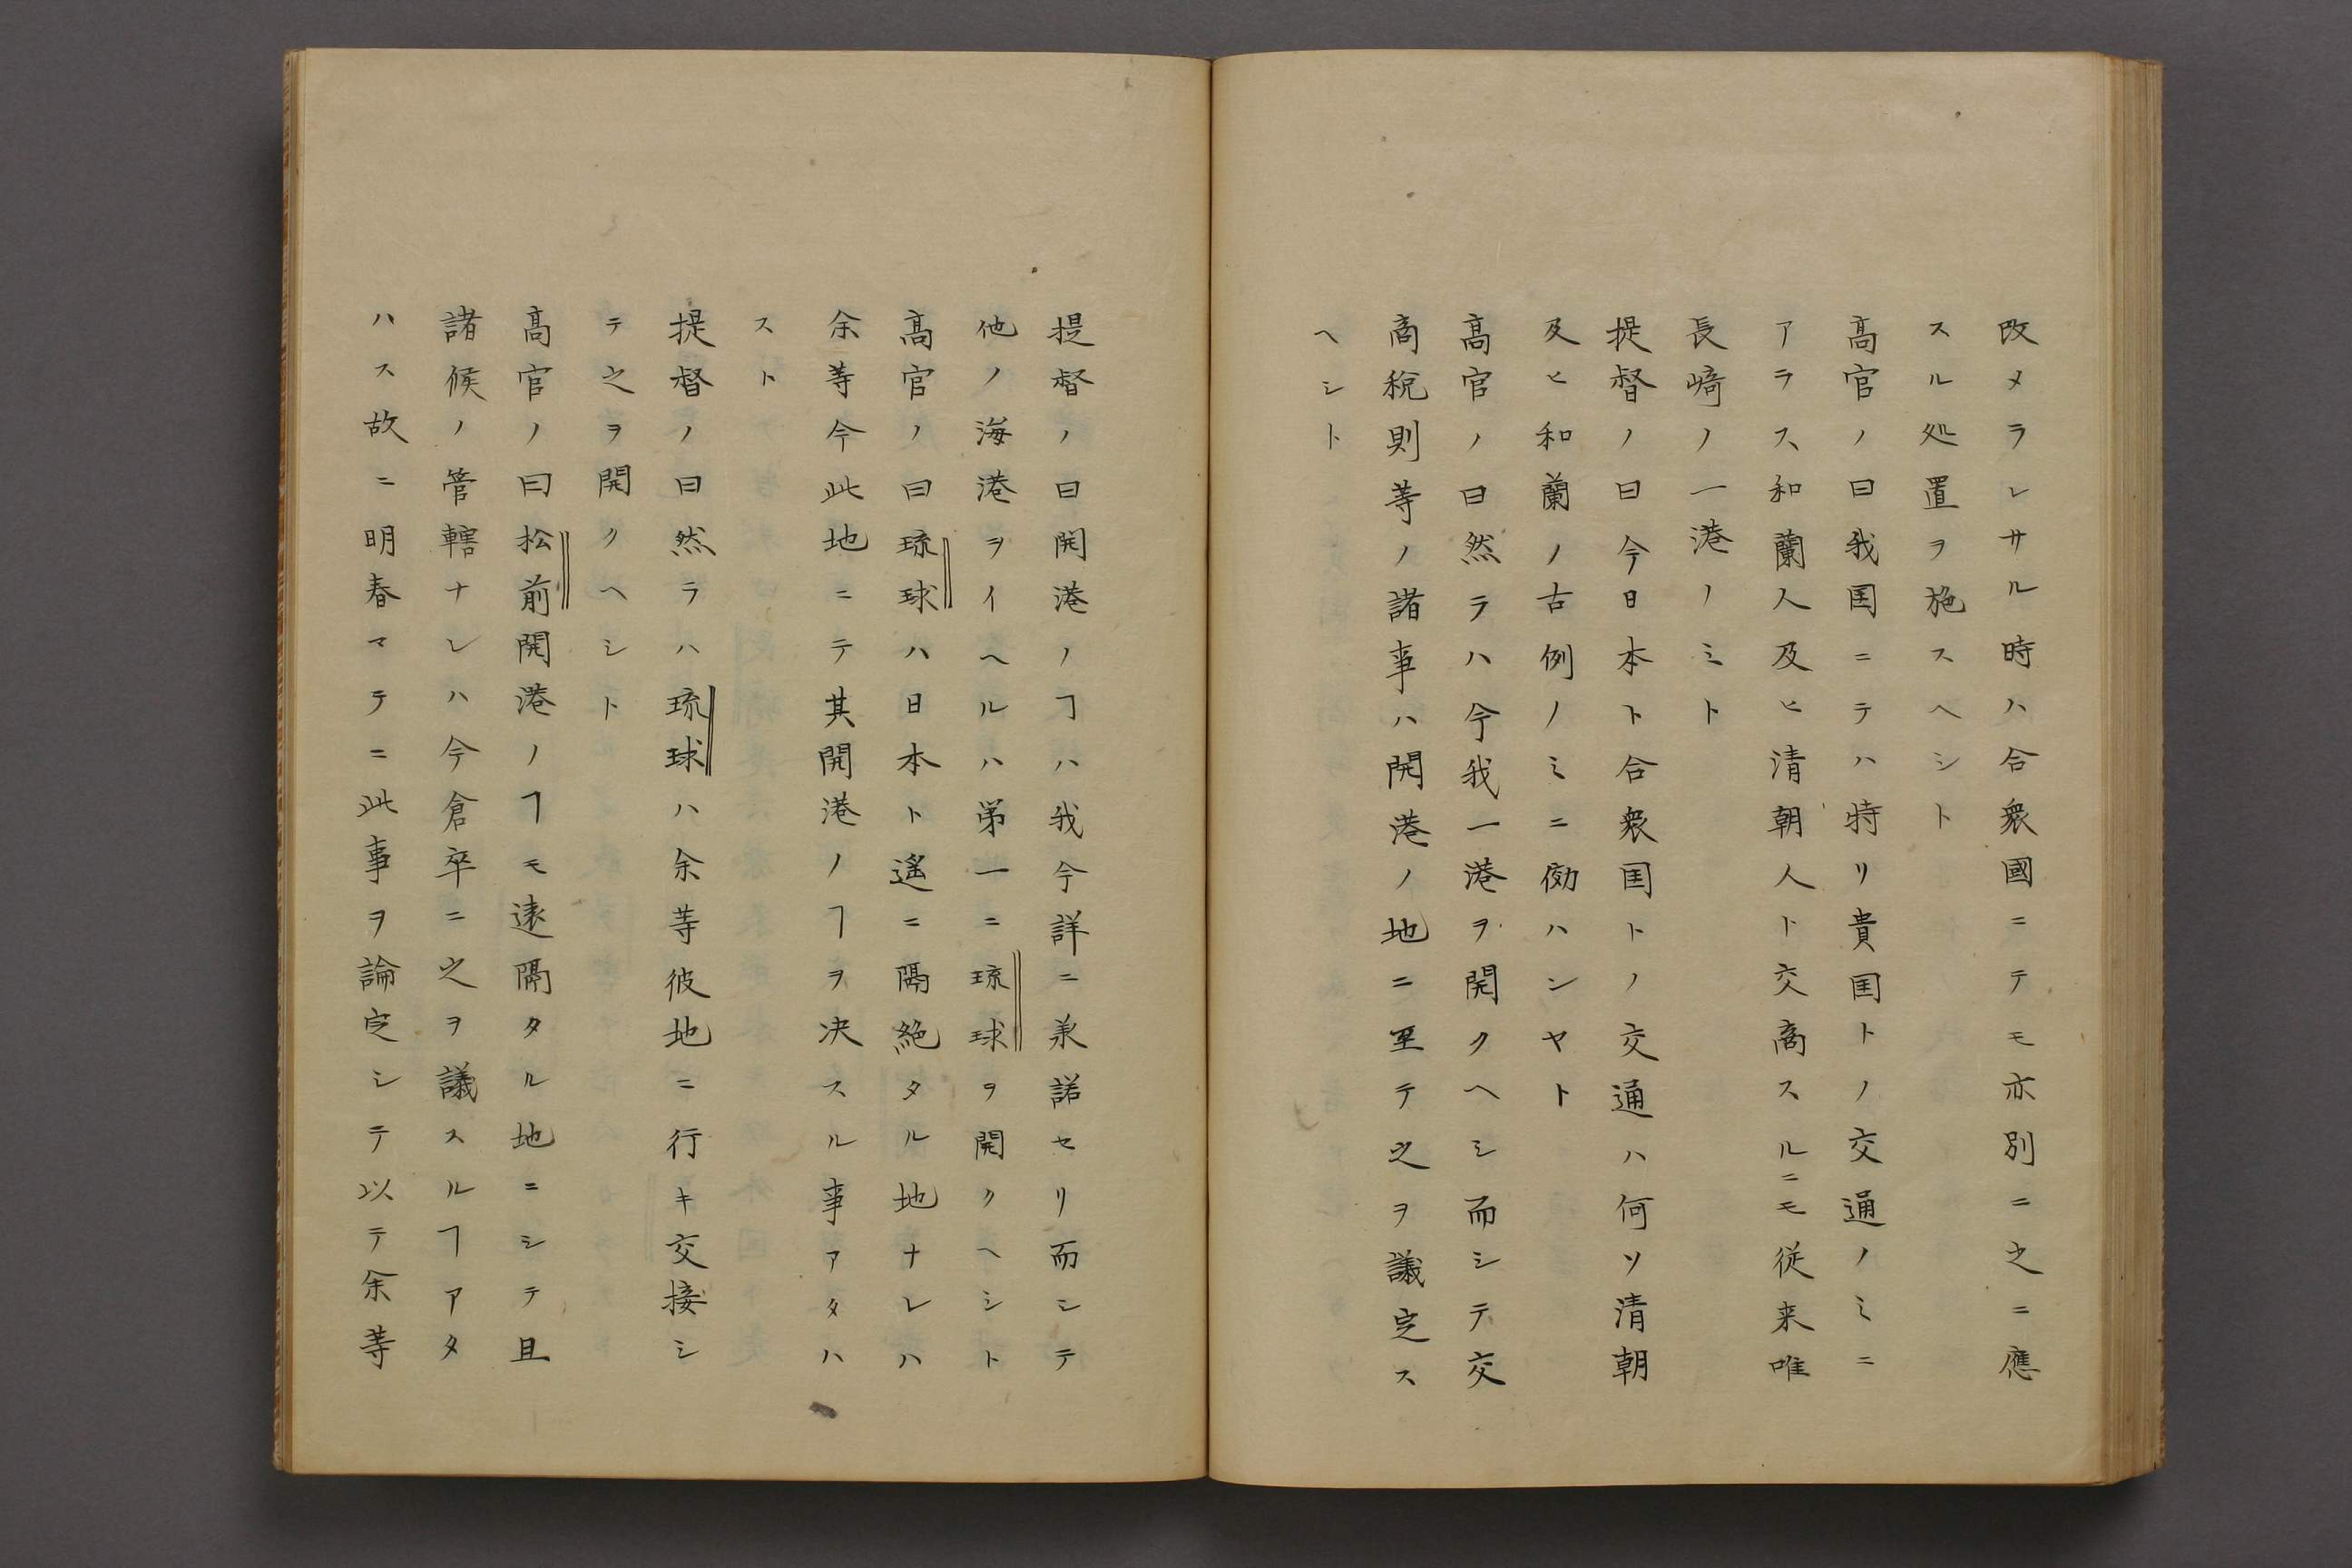 改メラレサル時ハ合衆國ニテモ亦別ニ之ニ應
スル処置ヲ施スヘシト
髙官ノ曰我国ニテハ特リ貴国トノ交通ノミニ
アラス和蘭人及ヒ清朝人ト交商スルニモ従来唯
長﨑ノ一港ノミト
提督ノ曰今日本ト合衆国トノ交通ハ何ソ清朝
及ヒ和蘭ノ古例ノミニ傚ハンヤト
髙官ノ曰然ラハ今我一港ヲ開クヘシ而シテ交
商税則等ノ諸事ハ開港ノ地ニ至テ之ヲ議定ス
ヘシト
提督ノ曰開港ノヿハ我今詳ニ承諾セリ而シテ
他ノ海港ヲイヘルハ第一ニ琉球ヲ開クヘシト
髙官ノ曰琉球ハ日本ト遙ニ隔絶タル地ナレハ
余等今此地ニテ其開港ノヿヲ决スル事アタハ
スト
提督ノ曰然ラハ琉球ハ余等彼地ニ行キ交接シ
テ之ヲ開クヘシト
髙官ノ曰松前開港ノヿモ遠隔タル地ニシテ且
諸候ノ管轄ナレハ今倉卒ニ之ヲ議スルヿアタ
ハス故ニ明春マテニ此事ヲ論定シテ以テ余等